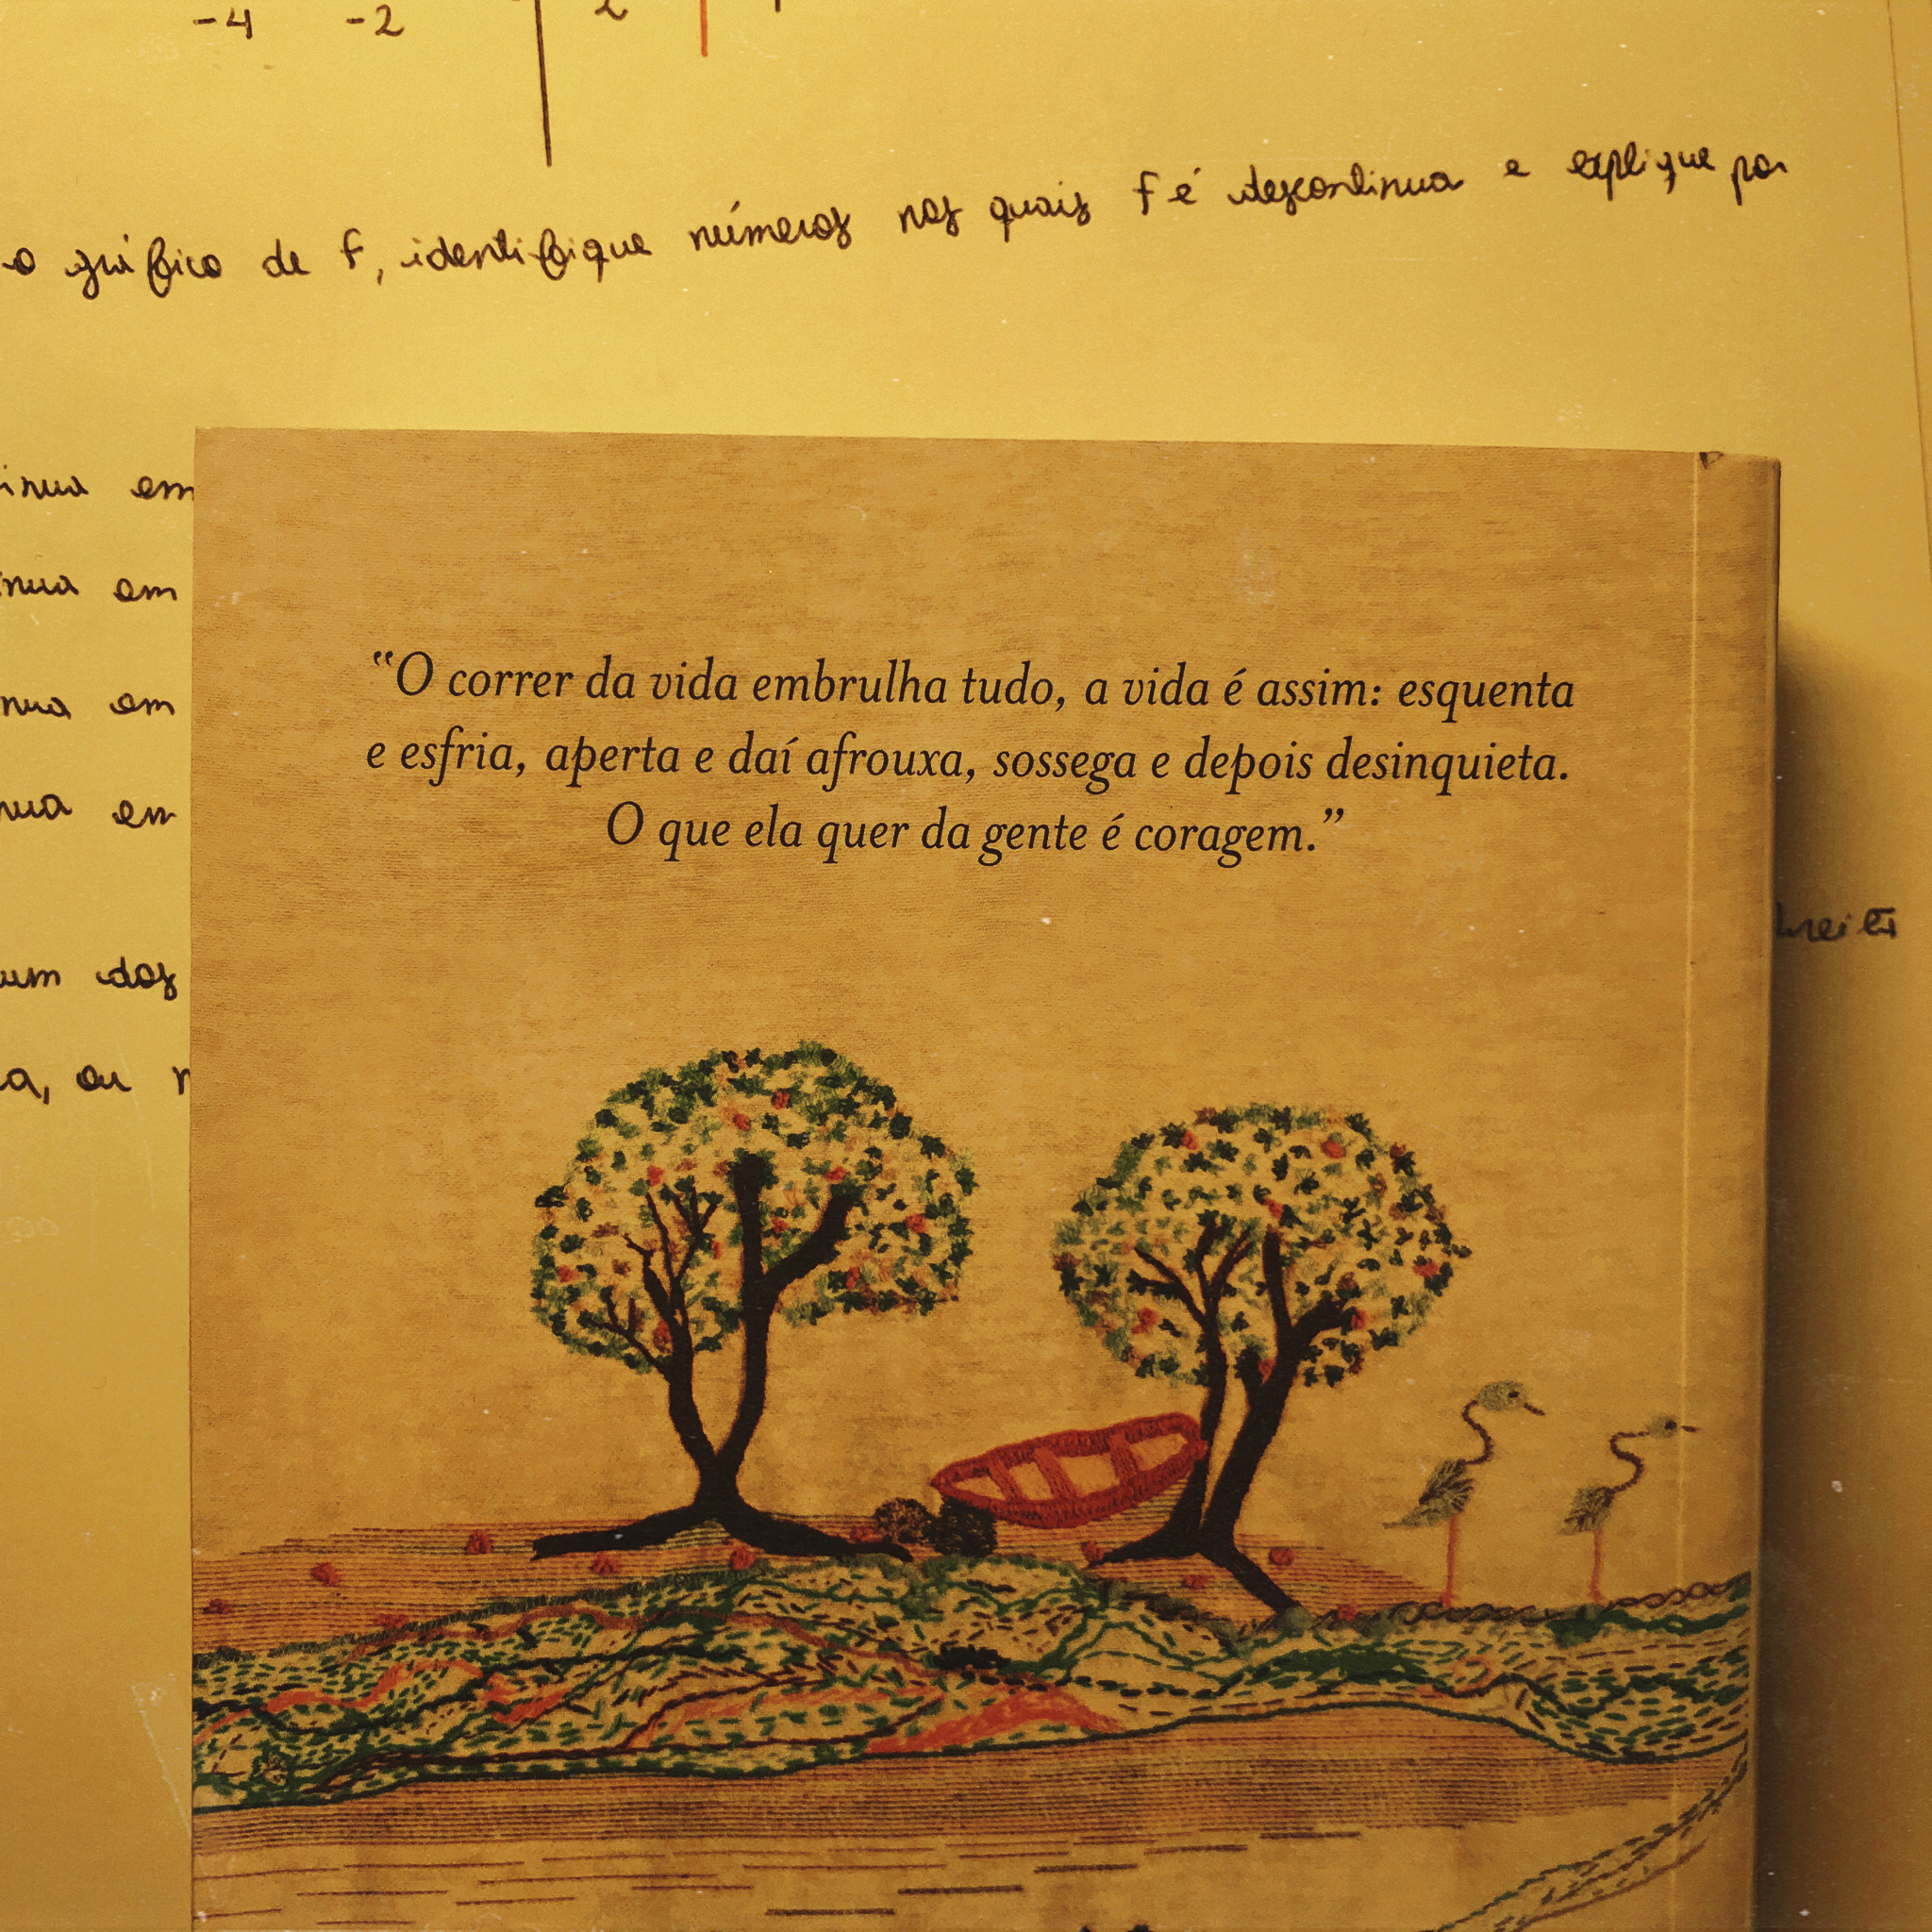 -4 -2 2
o gráfico de f, identifique números nos quais f é descontinua e explique por
inua em
inua em
nua em
nua em
“O correr da vida embrulha tudo, a vida é assim: esquenta
e esfria, aperta e daí afrouxa, sossega e depois desinquieta.
O que ela quer da gente é coragem.”
um dos
a, ou